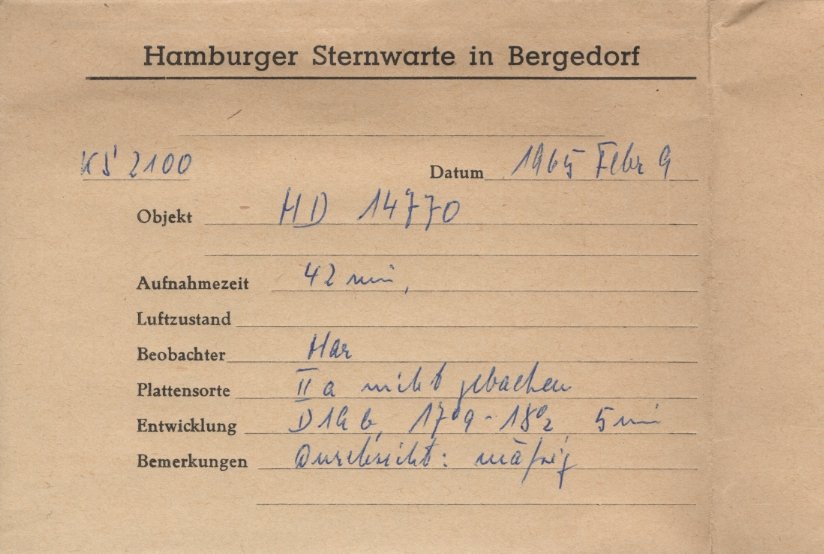 Hamburger Sternwarte in Bergedorf
KS 2100
Datum 1965 Febr 9
Objekt HD 14770
Aufnahmezeit 42 min,
Luftzustand
Beobachter Har
Plattensorte II a nicht gebacken
Entwicklung D19b, 17°9-18°2 5 min
Bemerkungen Durchsicht: mäßig